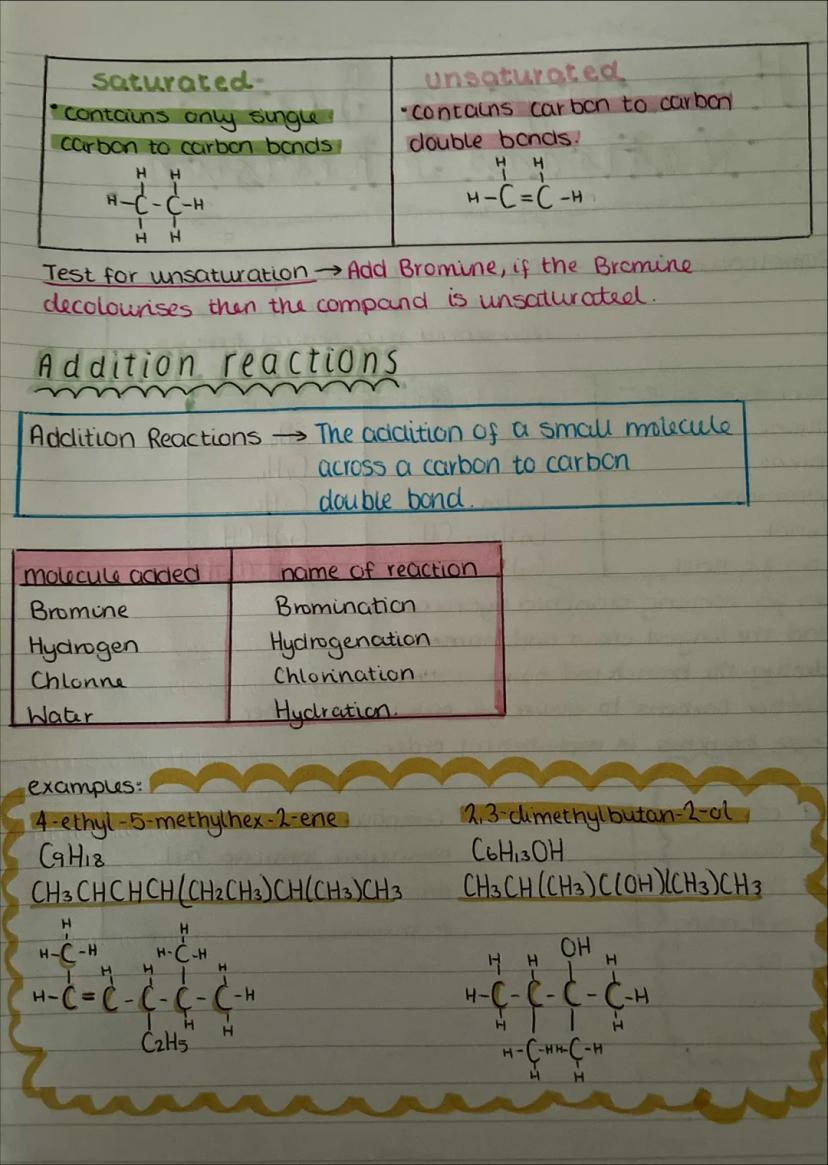 saturated
• contains only single
carbon to carbon bonds
H H
H-C-C-H
H H
unsaturated
• contains carbon to carbon
double bonds.
H H
H-C=C-H
Test for unsaturation → Add Bromine, if the Bromine
decolourises then the compand is unsaturated.
Addition reactions
Addition Reactions → The addition of a small molecule
across a carbon to carbon
double bond.
molecule added name of reaction
Bromine Bromination
Hydrogen Hydrogenation
Chlorine Chlorination
Water Hydration.
examples:
4-ethyl-5-methylhex-2-ene
C9H18
CH3CHCHCH(CH2CH3)CH(CH3)CH3
H H
H-C-H H-C-H
H H H
H-C=C-C-C-C-H
H H
C2H5
2,3-dimethylbutan-2-ol
C6H13OH
CH3CH(CH3)C(OH)(CH3)CH3
OH
H H H
H-C-C-C-C-H
H H
H-C-HH-C-H
H H